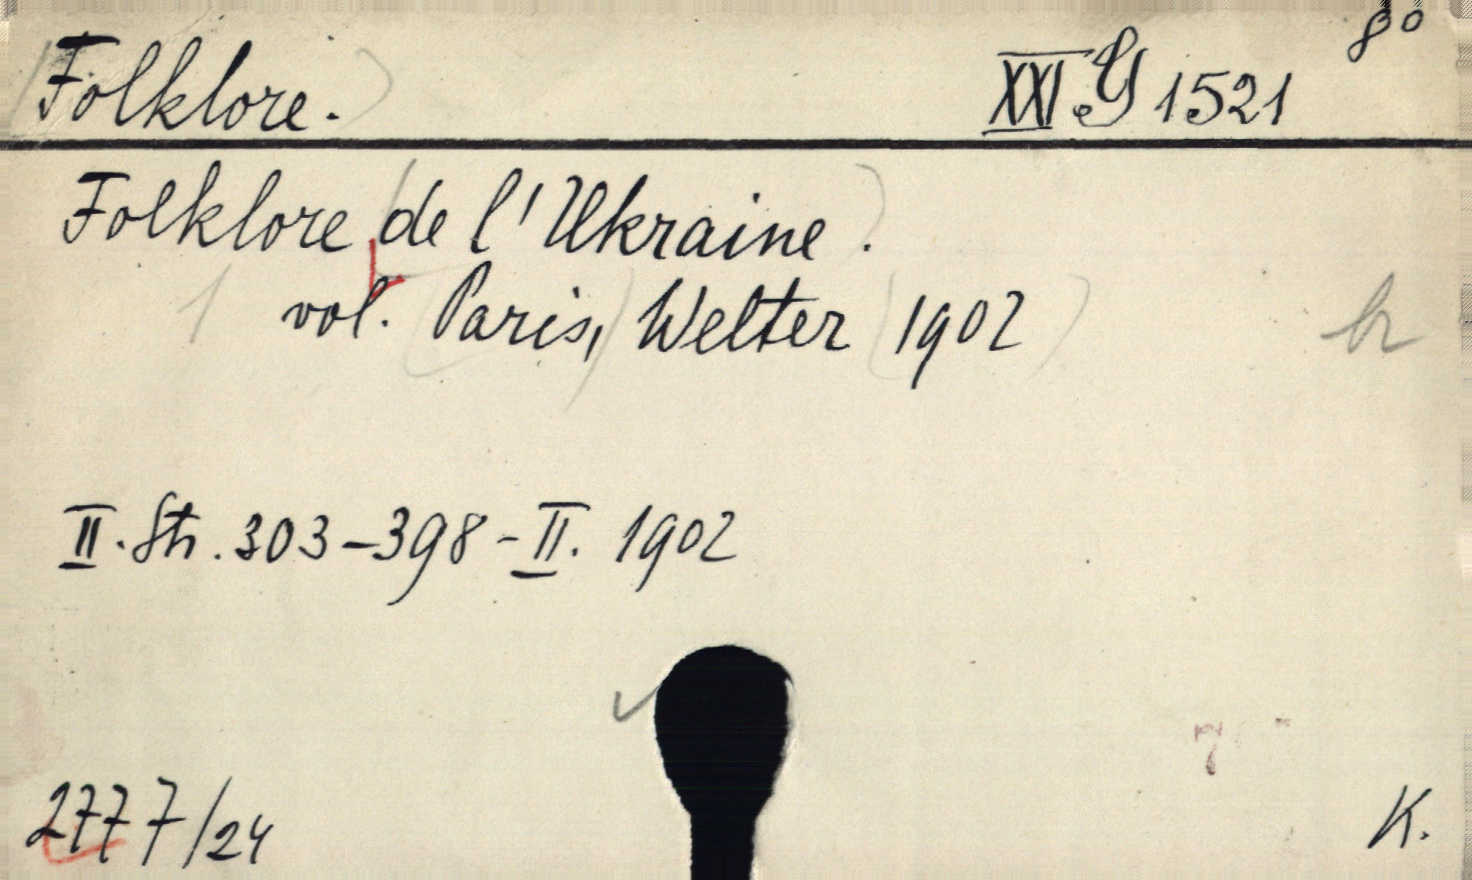 Folklore. XXI.G 1521 8°
Folklore de l'Ukraine.
1 vol. Paris, Welter 1902
II. Str. 303-398-II. 1902
7
2777/24 K.